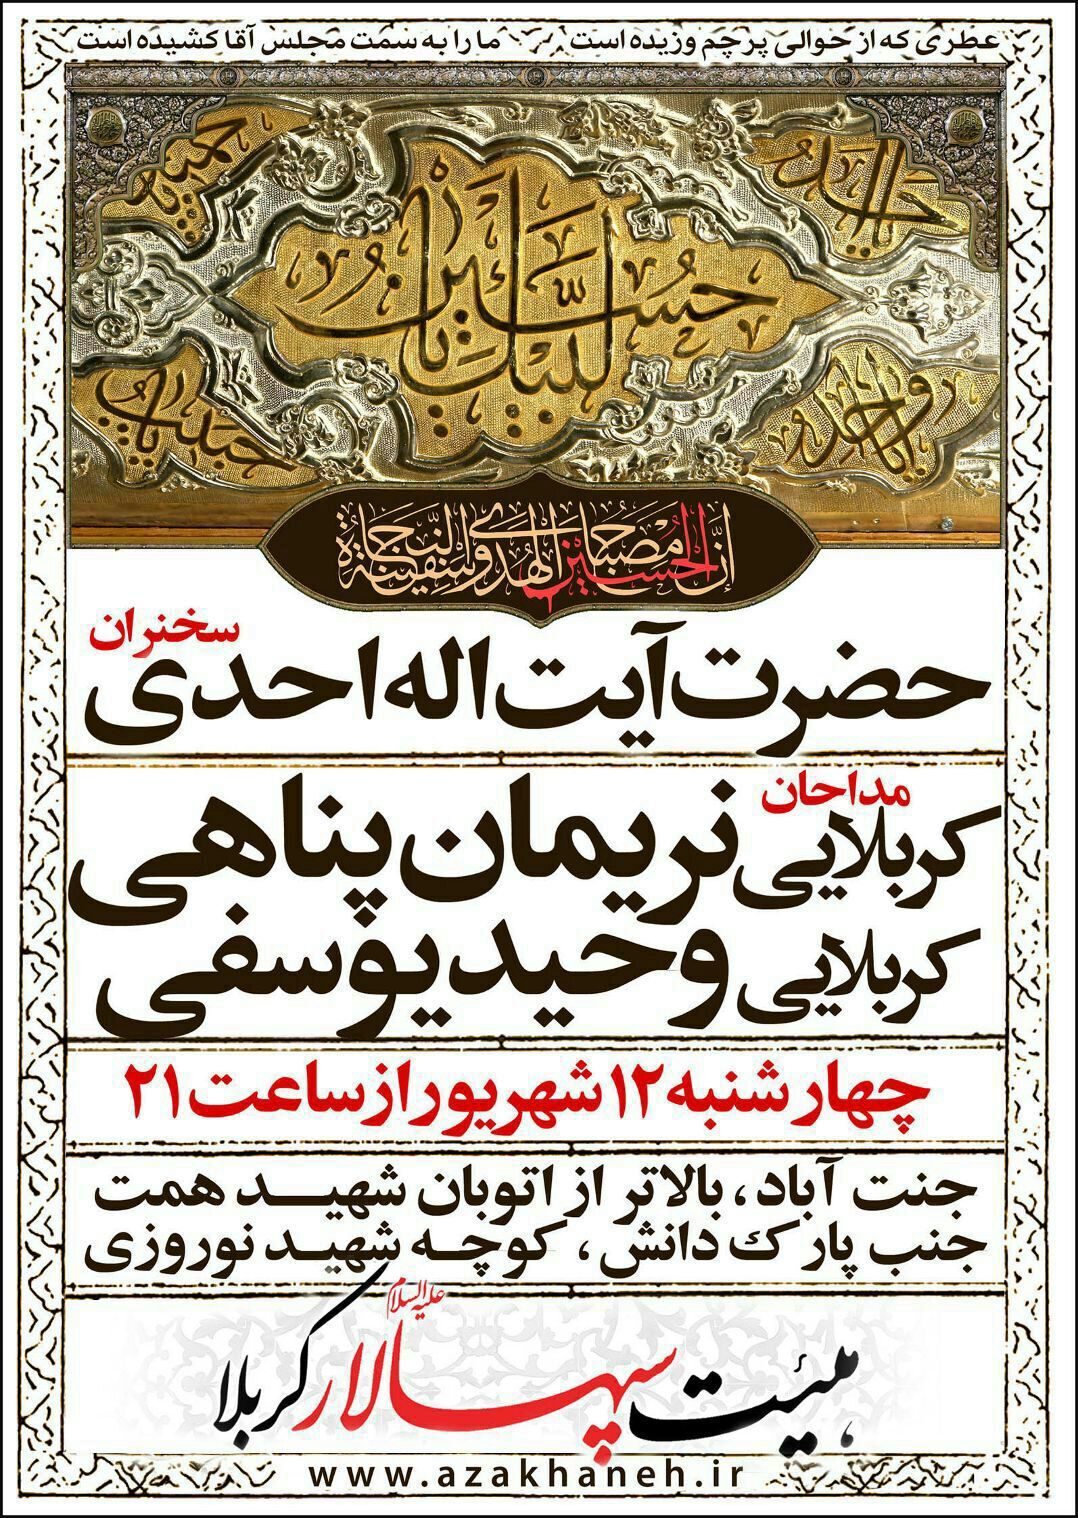 عطری که از حوالی پرچم وزیده است ما را به سمت مجلس آقا کشیده است
لبیک یا حسین
یا حمید
وحیداً
حبیب
إنّ الحسین مصباح الهدی و سفینة النجاة
سخنران
حضرت آیت اله احدی
مداحان
کربلایی نریمان پناهی
کربلایی وحید یوسفی
چهارشنبه ۱۲ شهریور از ساعت ۲۱
جنت آباد، بالاتر از اتوبان شهید همت
جنب پارک دانش، کوچه شهید نوروزی
هیئت سپهسالار کربلا علیه السلام
www.azakhaneh.ir